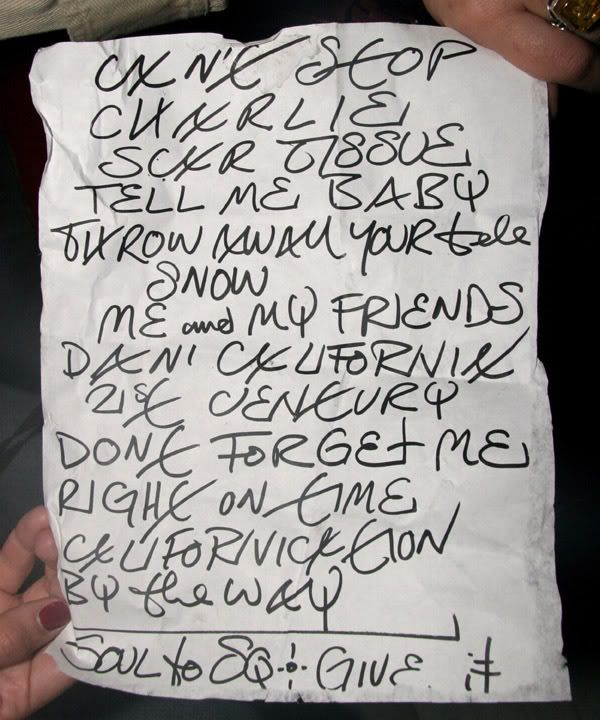 CAN'T STOP
CHARLIE
SCAR TISSUE
TELL ME BABY
THROW AWAY YOUR tele
SNOW
ME and MY FRIENDS
DANI CALIFORNIA
21st CENTURY
DONT FORGET ME
RIGHT ON TIME
CALIFORNICATION
BY the WAY
SOUL to SQ GIVE it